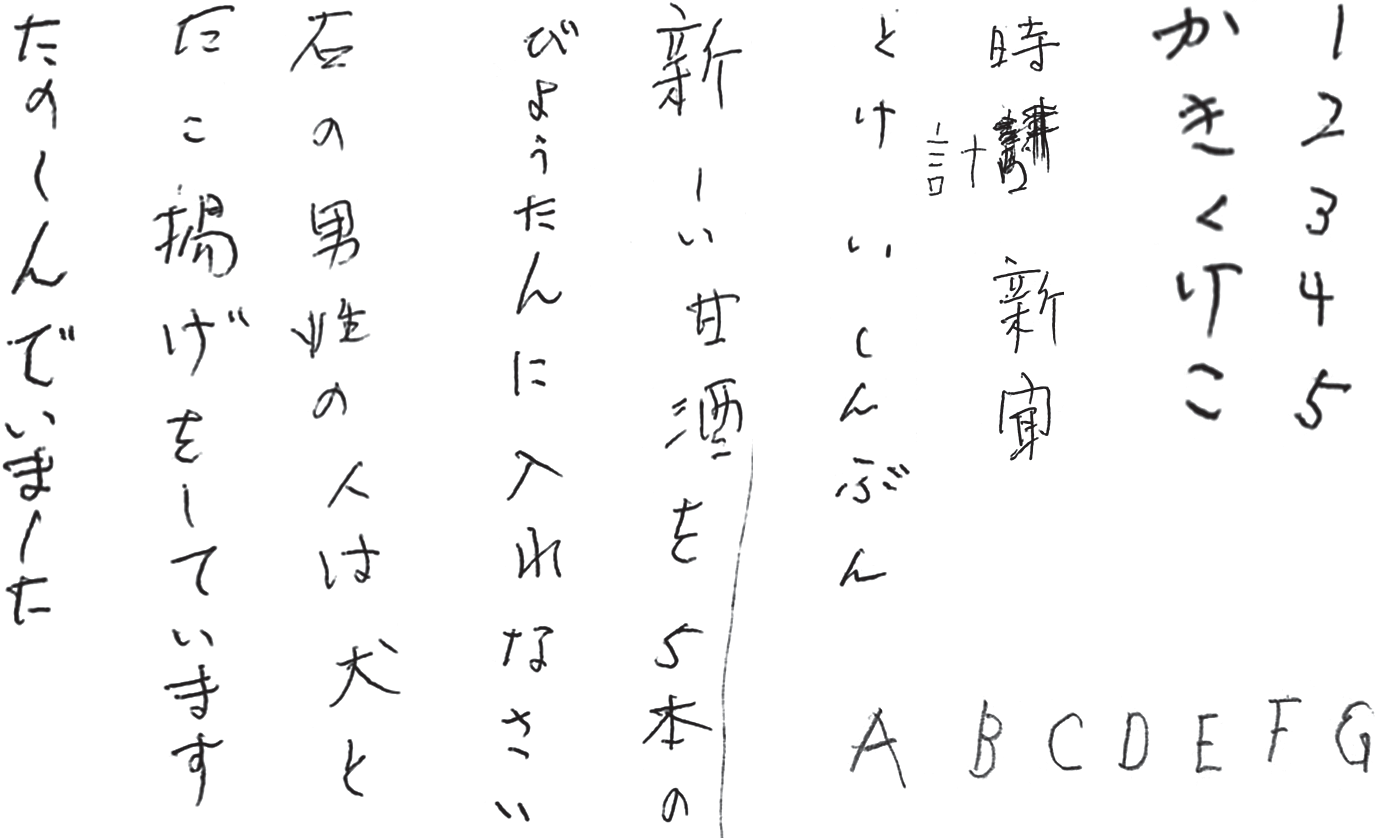 12345
かきくけこ
時計 新宣
とけいしんぶん
新しい甘酒を5本の
びょうたんに入れなさい
石の男性の人は犬と
たこ揚げをしています
たのしんでいました
ABCDEFG